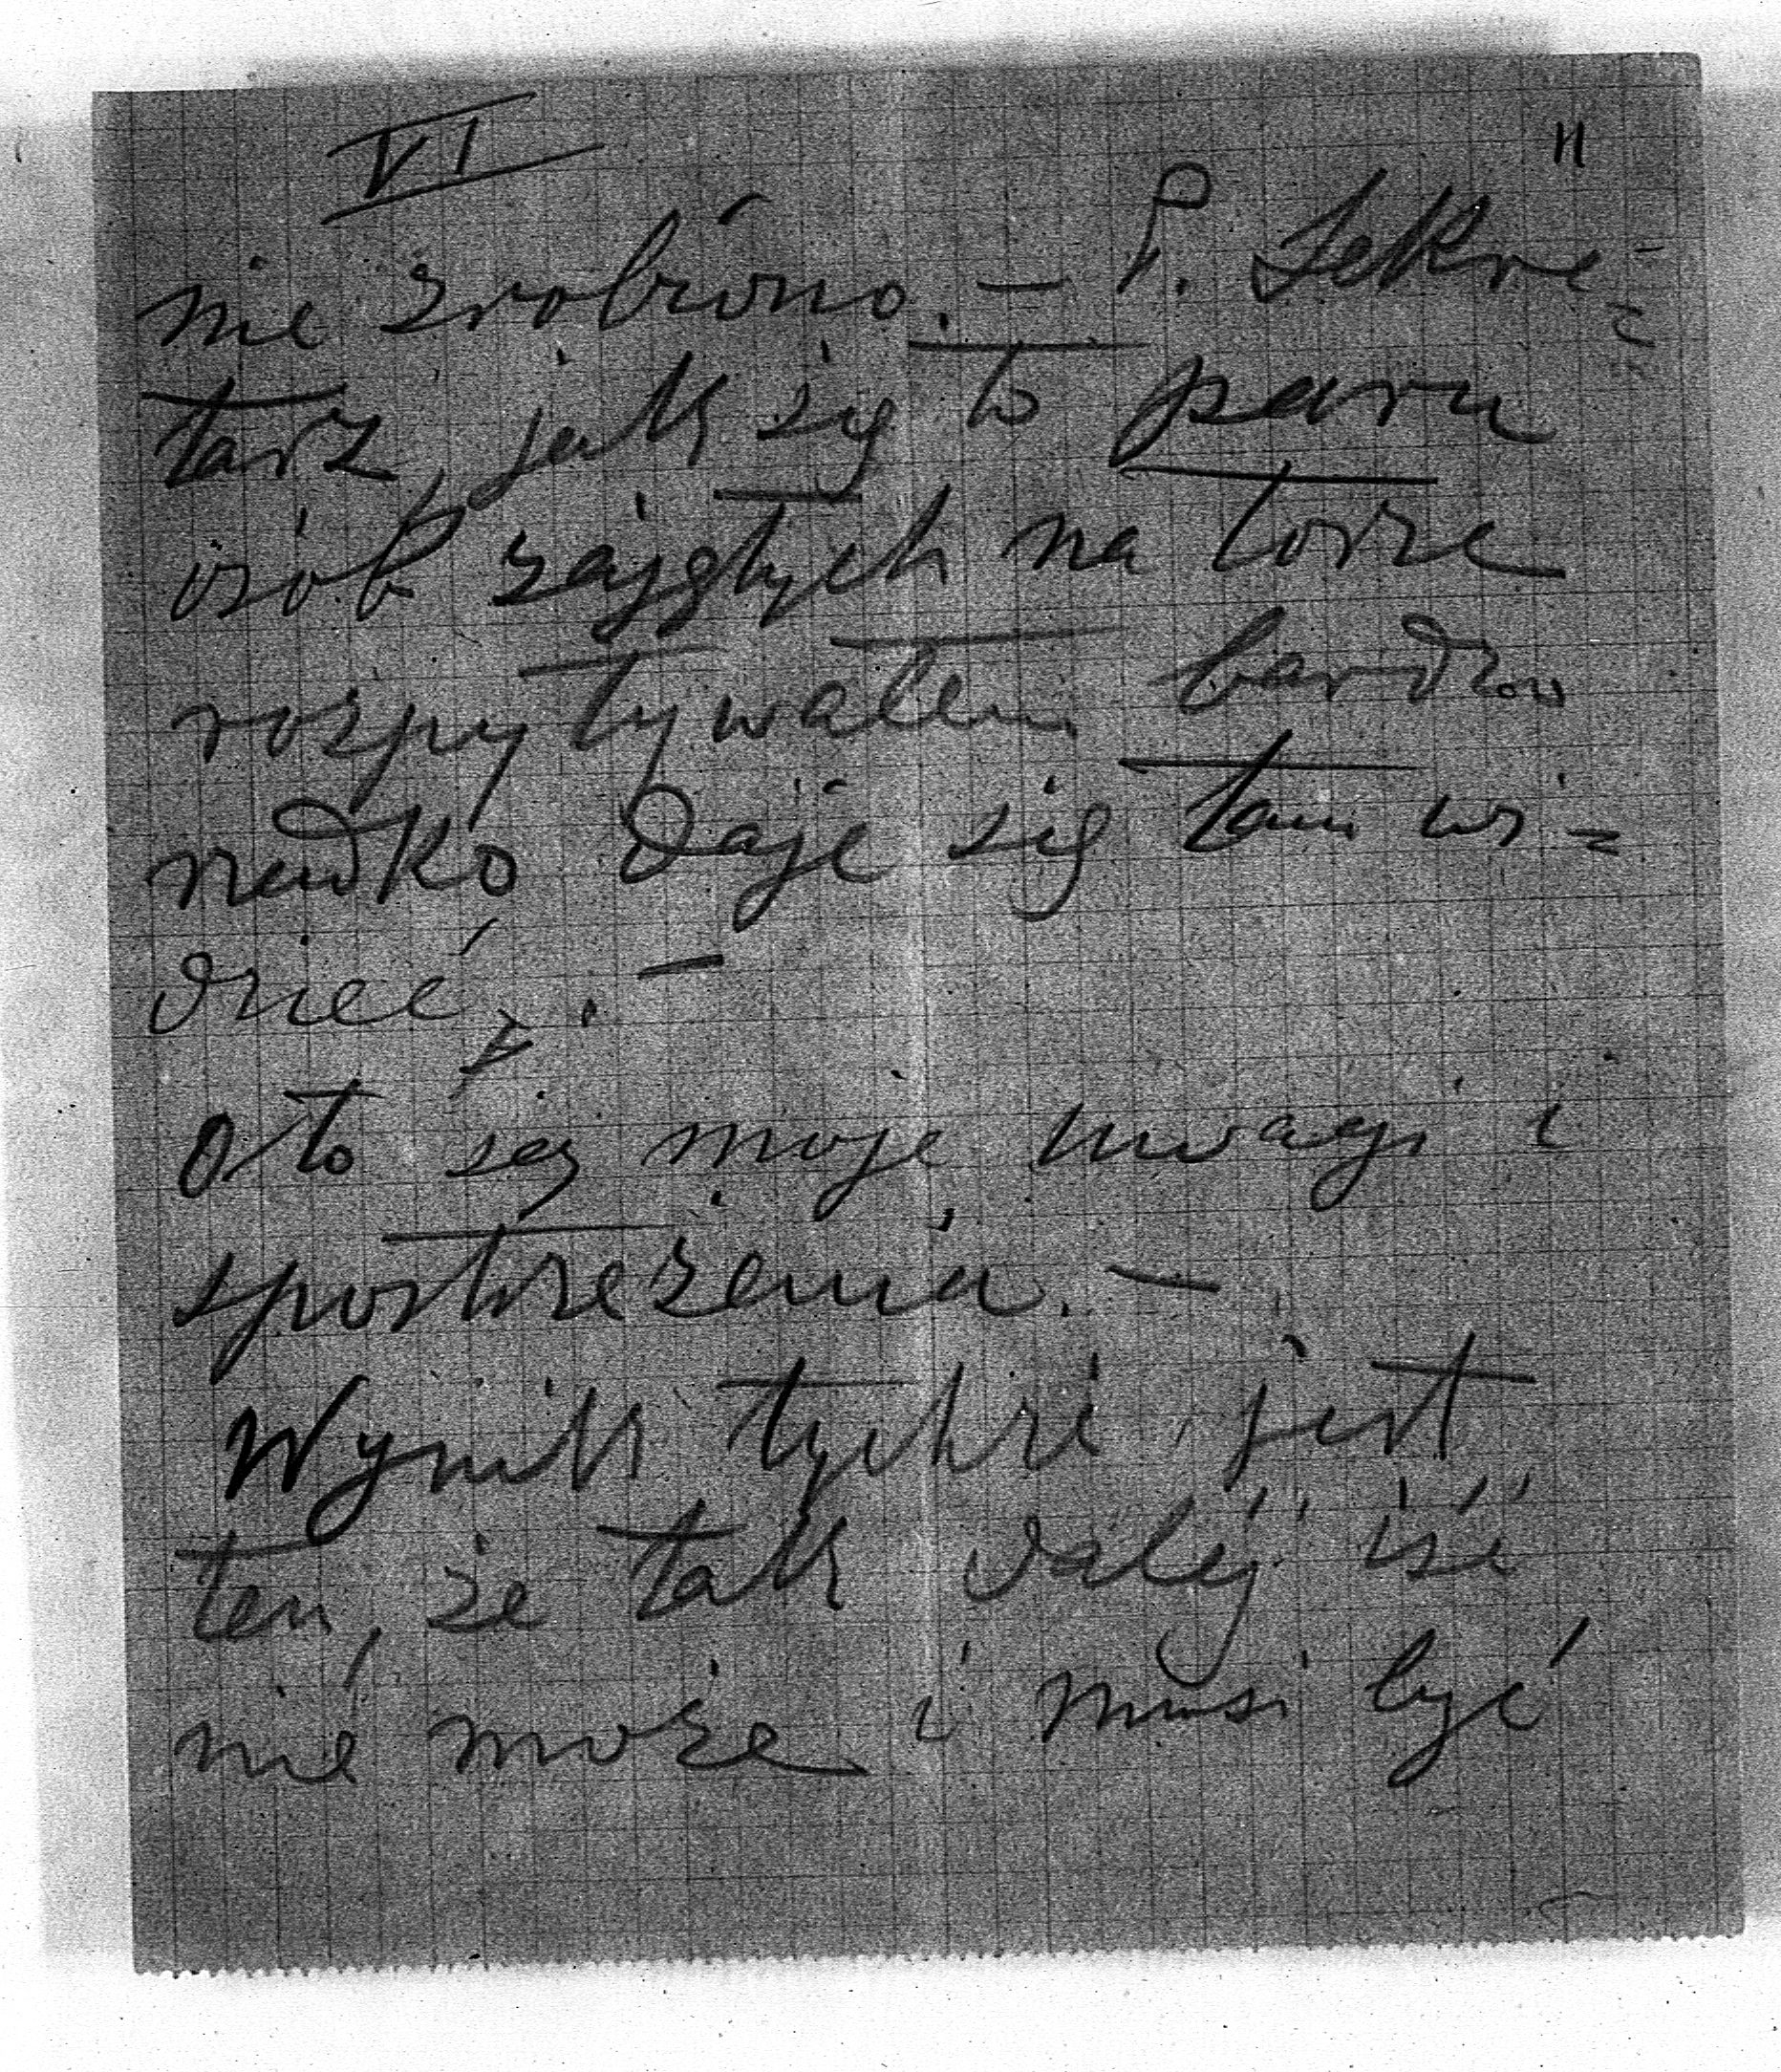 VI
11
nie zrobiono. — P. Sekre=
tarz, jak się to paru
osób zajętych na torze
rozpytywałem bardzo
rzadko daje się tam wi=
dzieć. —
Oto są moje uwagi i
spostrzeżenia. —
Wynik tychże jest
ten, że tak dalej iść
nie może i musi być